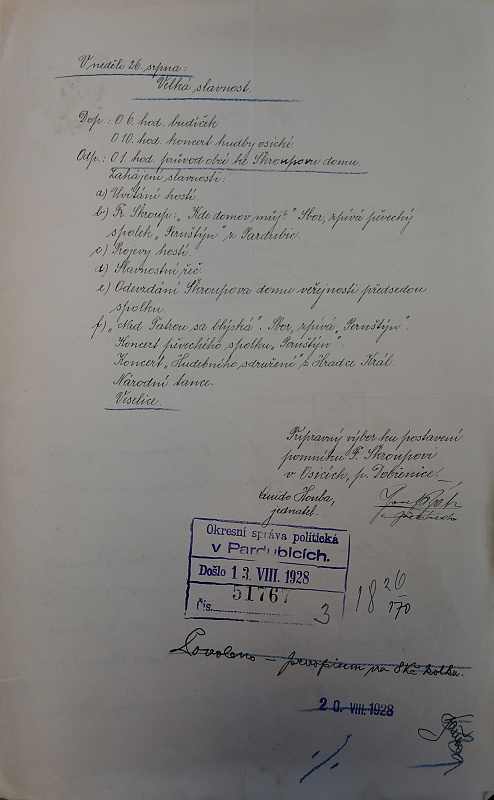 V neděli 26. srpna:
Velká slavnost.
Dop.: O 6. hod. budíček.
O 10. hod. koncert hudby osické.
Odp.: O 1. hod. průvod obcí ke Škroupovu domu.
Zahájení slavnosti:
a) Uvítání hostí.
b) Fr. Škroup: „Kde domov můj?" Sbor, zpívá pěvecký
spolek „Pernštýn" z Pardubic.
c) Projevy hostí.
d) Slavnostní řeč.
e) Odevzdání Škroupova domu veřejnosti předsedou
spolku.
f) „Nad Tatrou sa blýská". Sbor, zpívá „Pernštýn".
Koncert pěveckého spolku „Pernštýn".
Koncert „Hudebního sdružení" z Hradce Král.
Národní tance.
Veselice.
Přípravný výbor ku postavení
pomníku F. Škroupovi
v Osicích, p. Dobřenice.
Guido Houba,
jednatel.
Okresní správa politická
v Pardubicích.
Došlo 13. VIII. 1928
51767
Čís.
3
18 26
170
Povoleno – prvopisem na 8 Kč kolku.
20. VIII. 1928